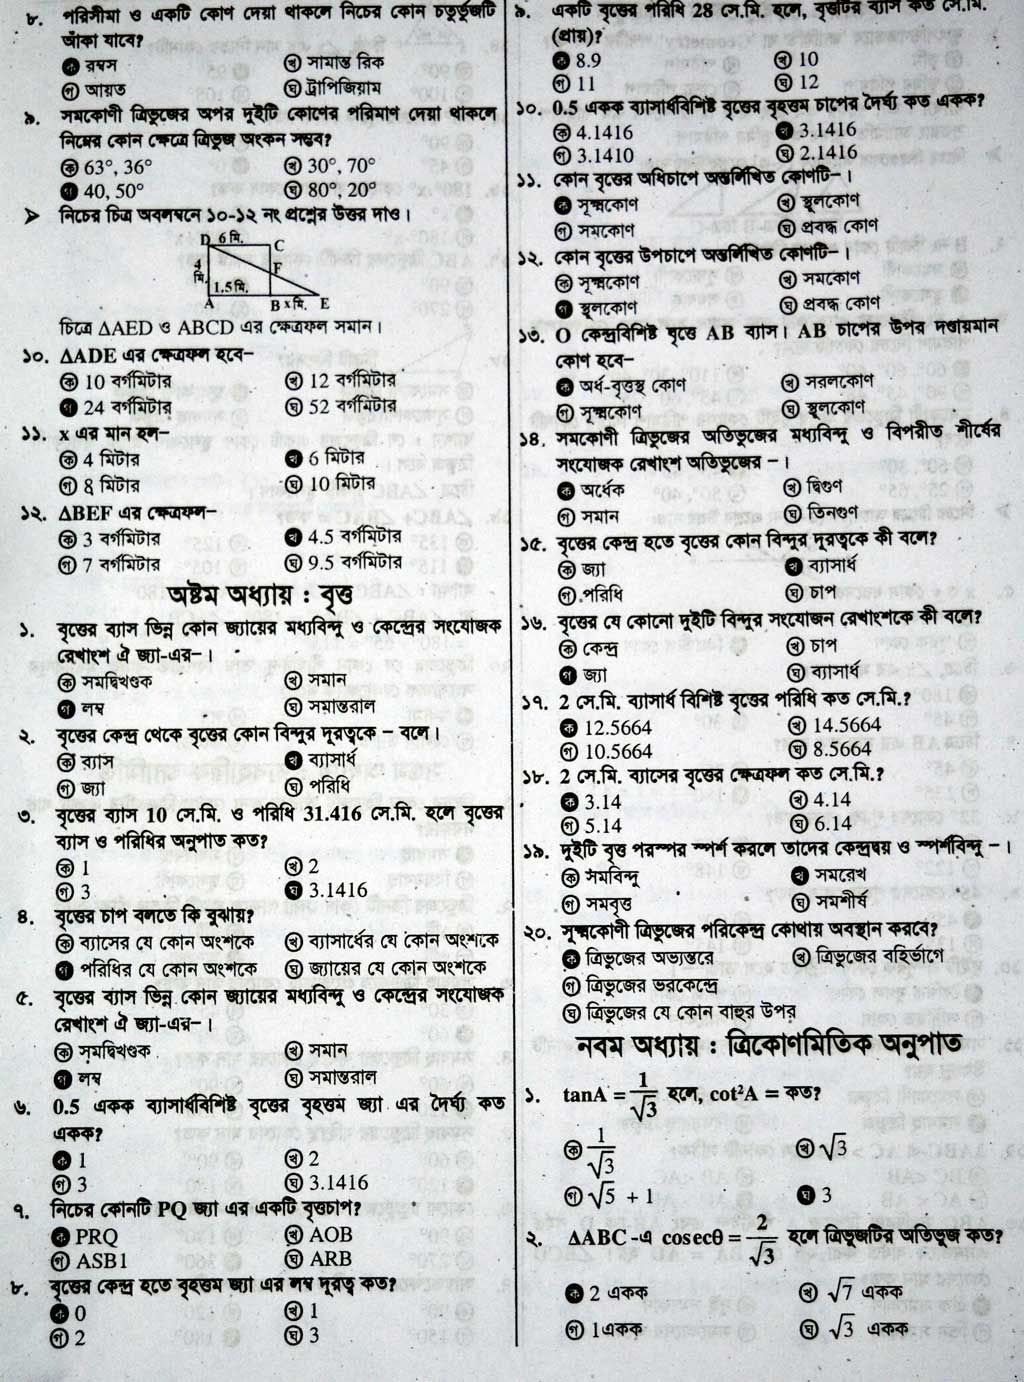 ৮. পরিসীমা ও একটি কোণ দেয়া থাকলে নিচের কোন চতুর্ভুজটি
আঁকা যাবে?
ক রম্বস খ সামান্ত রিক
গ আয়ত ঘ ট্রাপিজিয়াম
৯. সমকোণী ত্রিভুজের অপর দুইটি কোণের পরিমাণ দেয়া থাকলে
নিম্নের কোন ক্ষেত্রে ত্রিভুজ অংকন সম্ভব?
ক 63°, 36° খ 30°, 70°
গ 40, 50° ঘ 80°, 20°
➤ নিচের চিত্র অবলম্বনে ১০-১২ নং প্রশ্নের উত্তর দাও।
D 6 মি. C
4 মি. F
1.5মি.
A B x মি. E
চিত্রে ΔAED ও ABCD এর ক্ষেত্রফল সমান।
১০. ΔADE এর ক্ষেত্রফল হবে–
ক 10 বর্গমিটার খ 12 বর্গমিটার
গ 24 বর্গমিটার ঘ 52 বর্গমিটার
১১. x এর মান হল–
ক 4 মিটার খ 6 মিটার
গ 8 মিটার ঘ 10 মিটার
১২. ΔBEF এর ক্ষেত্রফল–
ক 3 বর্গমিটার খ 4.5 বর্গমিটার
গ 7 বর্গমিটার ঘ 9.5 বর্গমিটার
অষ্টম অধ্যায় : বৃত্ত
১. বৃত্তের ব্যাস ভিন্ন কোন জ্যায়ের মধ্যবিন্দু ও কেন্দ্রের সংযোজক
রেখাংশ ঐ জ্যা-এর–।
ক সমদ্বিখণ্ডক খ সমান
গ লম্ব ঘ সমান্তরাল
২. বৃত্তের কেন্দ্র থেকে বৃত্তের কোন বিন্দুর দূরত্বকে – বলে।
ক ব্যাস খ ব্যাসার্ধ
গ জ্যা ঘ পরিধি
৩. বৃত্তের ব্যাস 10 সে.মি. ও পরিধি 31.416 সে.মি. হলে বৃত্তের
ব্যাস ও পরিধির অনুপাত কত?
ক 1 খ 2
গ 3 ঘ 3.1416
৪. বৃত্তের চাপ বলতে কি বুঝায়?
ক ব্যাসের যে কোন অংশকে খ ব্যাসার্ধের যে কোন অংশকে
গ পরিধির যে কোন অংশকে ঘ জ্যায়ের যে কোন অংশকে
৫. বৃত্তের ব্যাস ভিন্ন কোন জ্যায়ের মধ্যবিন্দু ও কেন্দ্রের সংযোজক
রেখাংশ ঐ জ্যা-এর–।
ক সমদ্বিখণ্ডক খ সমান
গ লম্ব ঘ সমান্তরাল
৬. 0.5 একক ব্যাসার্ধবিশিষ্ট বৃত্তের বৃহত্তম জ্যা এর দৈর্ঘ্য কত
একক?
ক 1 খ 2
গ 3 ঘ 3.1416
৭. নিচের কোনটি PQ জ্যা এর একটি বৃত্তচাপ?
ক PRQ খ AOB
গ ASB1 ঘ ARB
৮. বৃত্তের কেন্দ্র হতে বৃহত্তম জ্যা এর লম্ব দূরত্ব কত?
ক 0 খ 1
গ 2 ঘ 3
৯. একটি বৃত্তের পরিধি 28 সে.মি. হলে, বৃত্তটির ব্যাস কত সে.মি.
(প্রায়)?
ক 8.9 খ 10
গ 11 ঘ 12
১০. 0.5 একক ব্যাসার্ধবিশিষ্ট বৃত্তের বৃহত্তম চাপের দৈর্ঘ্য কত একক?
ক 4.1416 খ 3.1416
গ 3.1410 ঘ 2.1416
১১. কোন বৃত্তের অধিচাপে অন্তর্লিখিত কোণটি–।
ক সূক্ষ্মকোণ খ স্থূলকোণ
গ সমকোণ ঘ প্রবৃদ্ধ কোণ
১২. কোন বৃত্তের উপচাপে অন্তর্লিখিত কোণটি–।
ক সূক্ষ্মকোণ খ সমকোণ
গ স্থূলকোণ ঘ প্রবৃদ্ধ কোণ
১৩. O কেন্দ্রবিশিষ্ট বৃত্তে AB ব্যাস। AB চাপের উপর দণ্ডায়মান
কোণ হবে–
ক অর্ধ-বৃত্তস্থ কোণ খ সরলকোণ
গ সূক্ষ্মকোণ ঘ স্থূলকোণ
১৪. সমকোণী ত্রিভুজের অতিভুজের মধ্যবিন্দু ও বিপরীত শীর্ষের
সংযোজক রেখাংশ অতিভুজের –।
ক অর্ধেক খ দ্বিগুণ
গ সমান ঘ তিনগুণ
১৫. বৃত্তের কেন্দ্র হতে বৃত্তের কোন বিন্দুর দূরত্বকে কী বলে?
ক জ্যা খ ব্যাসার্ধ
গ পরিধি ঘ চাপ
১৬. বৃত্তের যে কোনো দুইটি বিন্দুর সংযোজন রেখাংশকে কী বলে?
ক কেন্দ্র খ চাপ
গ জ্যা ঘ ব্যাসার্ধ
১৭. 2 সে.মি. ব্যাসার্ধ বিশিষ্ট বৃত্তের পরিধি কত সে.মি.?
ক 12.5664 খ 14.5664
গ 10.5664 ঘ 8.5664
১৮. 2 সে.মি. ব্যাসের বৃত্তের ক্ষেত্রফল কত সে.মি.?
ক 3.14 খ 4.14
গ 5.14 ঘ 6.14
১৯. দুইটি বৃত্ত পরস্পর স্পর্শ করলে তাদের কেন্দ্রদ্বয় ও স্পর্শবিন্দু –।
ক সমবিন্দু খ সমরেখ
গ সমবৃত্ত ঘ সমশীর্ষ
২০. সূক্ষ্মকোণী ত্রিভুজের পরিকেন্দ্র কোথায় অবস্থান করবে?
ক ত্রিভুজের অভ্যন্তরে খ ত্রিভুজের বহির্ভাগে
গ ত্রিভুজের ভরকেন্দ্রে
ঘ ত্রিভুজের যে কোন বাহুর উপর
নবম অধ্যায় : ত্রিকোণমিতিক অনুপাত
১. tanA = 1/√3 হলে, cot²A = কত?
ক 1/√3 খ √3
গ √5 + 1 ঘ 3
২. ΔABC -এ cosecθ = 2/√3 হলে ত্রিভুজটির অতিভুজ কত?
ক 2 একক খ √7 একক
গ 1একক ঘ √3 একক